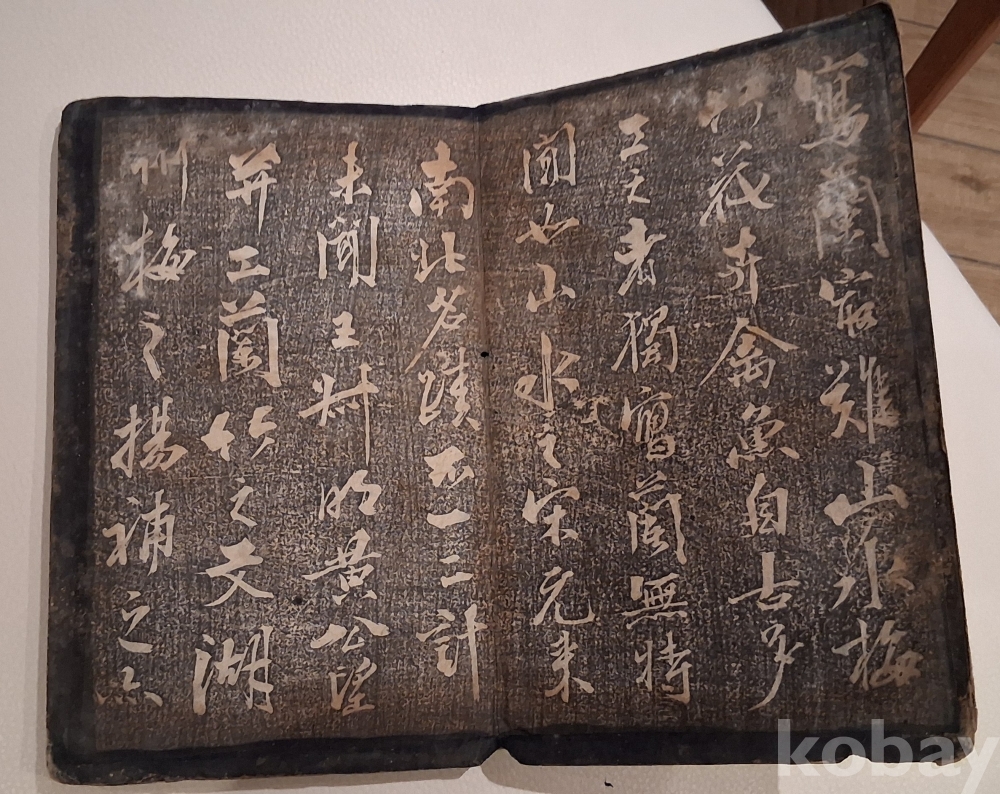 寫蘭最難山水梅
竹花卉禽魚自古多
工之者獨寫蘭無特
聞如山水之宋元来
南北名蹟不一二計
未聞王叔明黃公望
并工蘭竹之文湖
州梅之揚補之亦
kobay